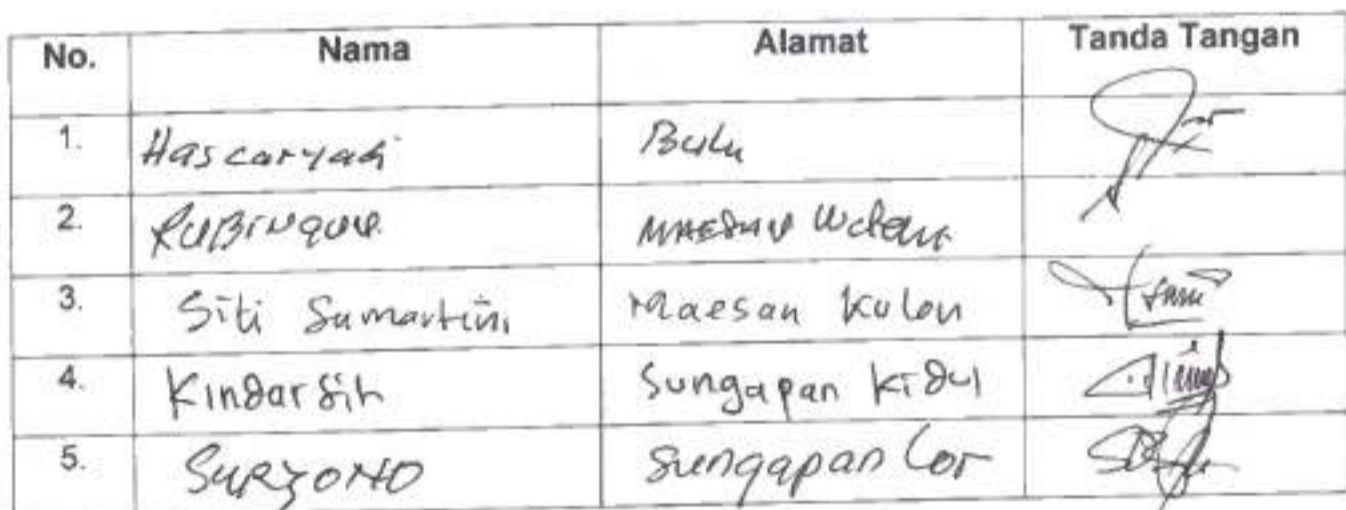 No. Nama Alamat Tanda Tangan
1. Hascaryadi Bulu
2. RUBINGUN MAESAN Wetan
3. Siti Sumartini Maesan Kulon
4. Kindarsih Sungapan Kidul
5. SURYONO Sungapan Lor